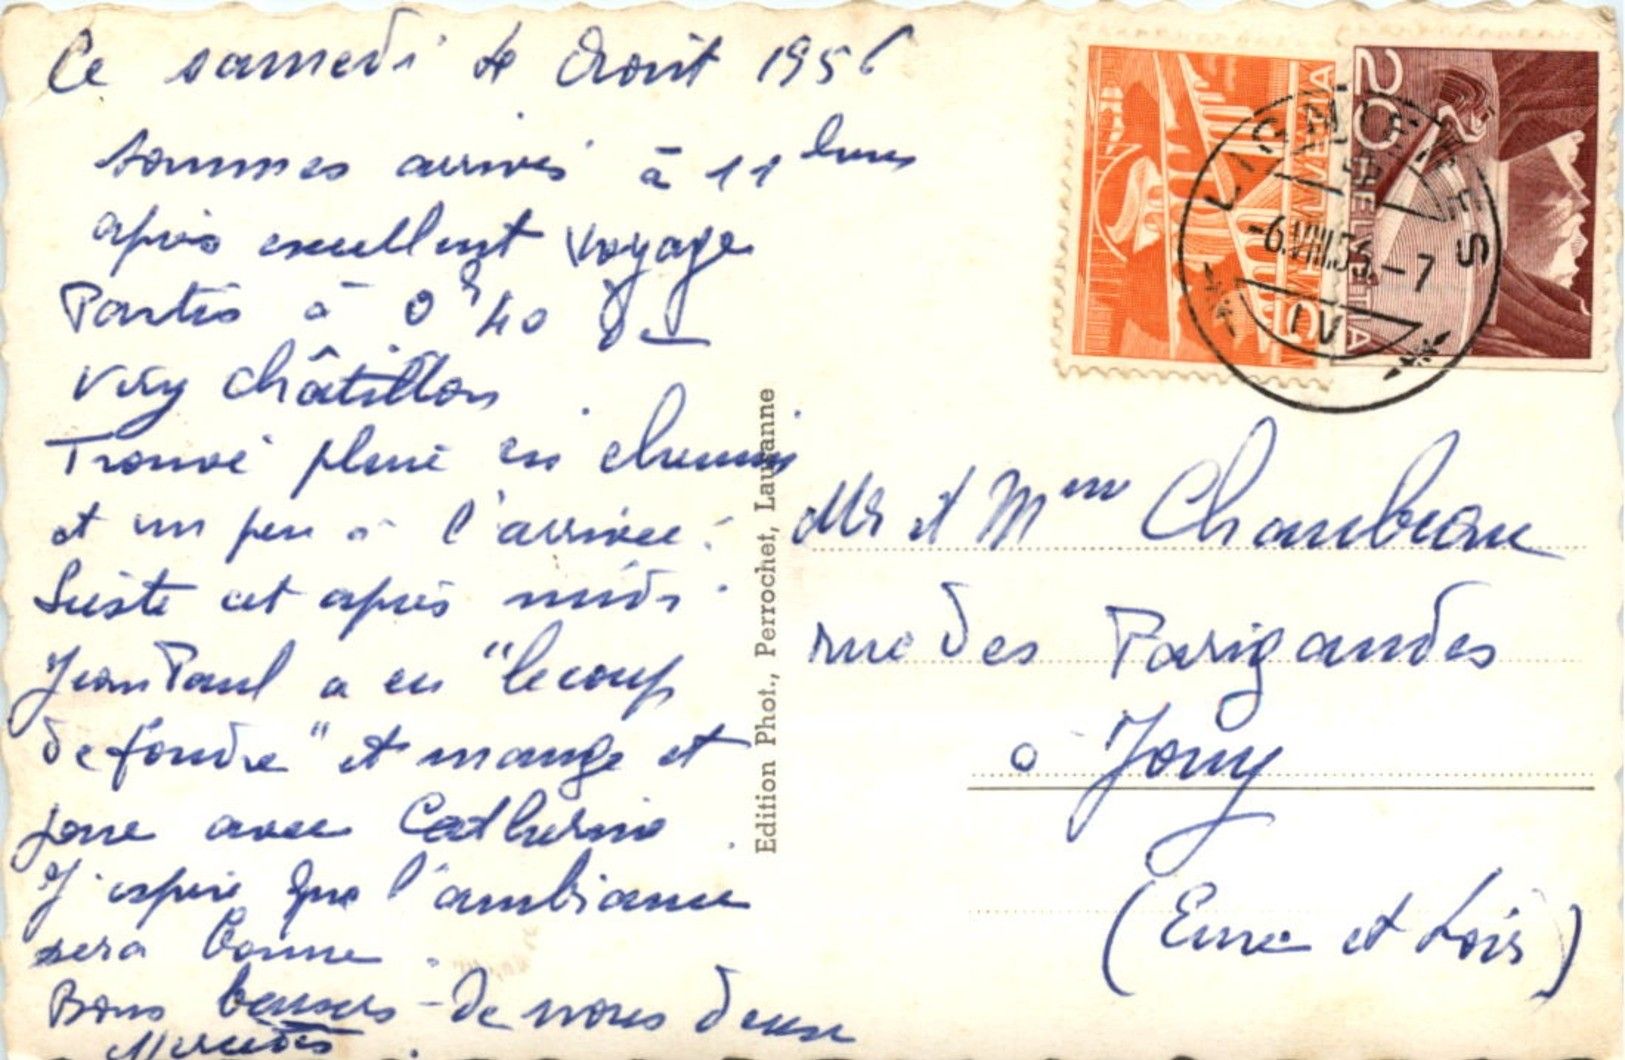 Ce samedi 4 Août 1956
sommes arrivés à 11 heures
après excellent voyage
Partis à 0h40 de
Viry châtillon
Trouvé pluie en chemin
et un peu à l'arrivée.
Sieste cet après midi.
Jean Paul a eu "le coup
de foudre" et mange et
joue avec Catherine.
J'espère que l'ambiance
sera bonne.
Bons baisers de nous deux
Mercedes
Edition Phot., Perrochet, Lausanne
20
HELVETIA
HELVETIA
5
LIGNIERES
-6.VIII.56.-7
Mr et Mme Chambeau
rue des Parigaudes
à Jouy
(Eure et Loir)